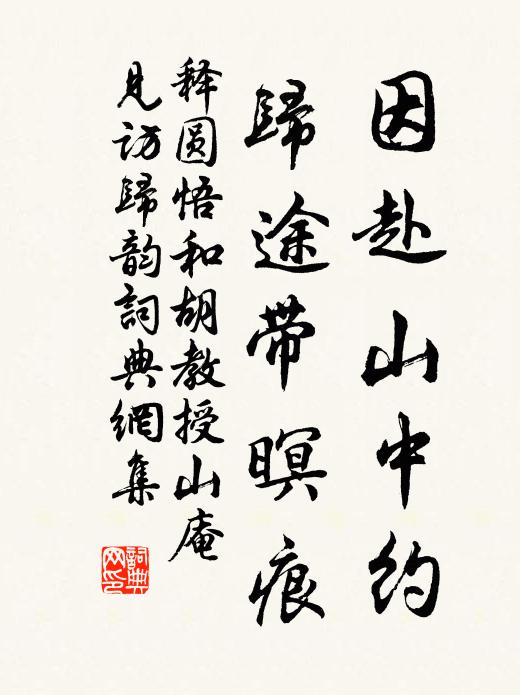 因赴山中約
歸途带暝痕
释圆悟和胡教授山庵
見访歸韵詞典網集
詞典網印